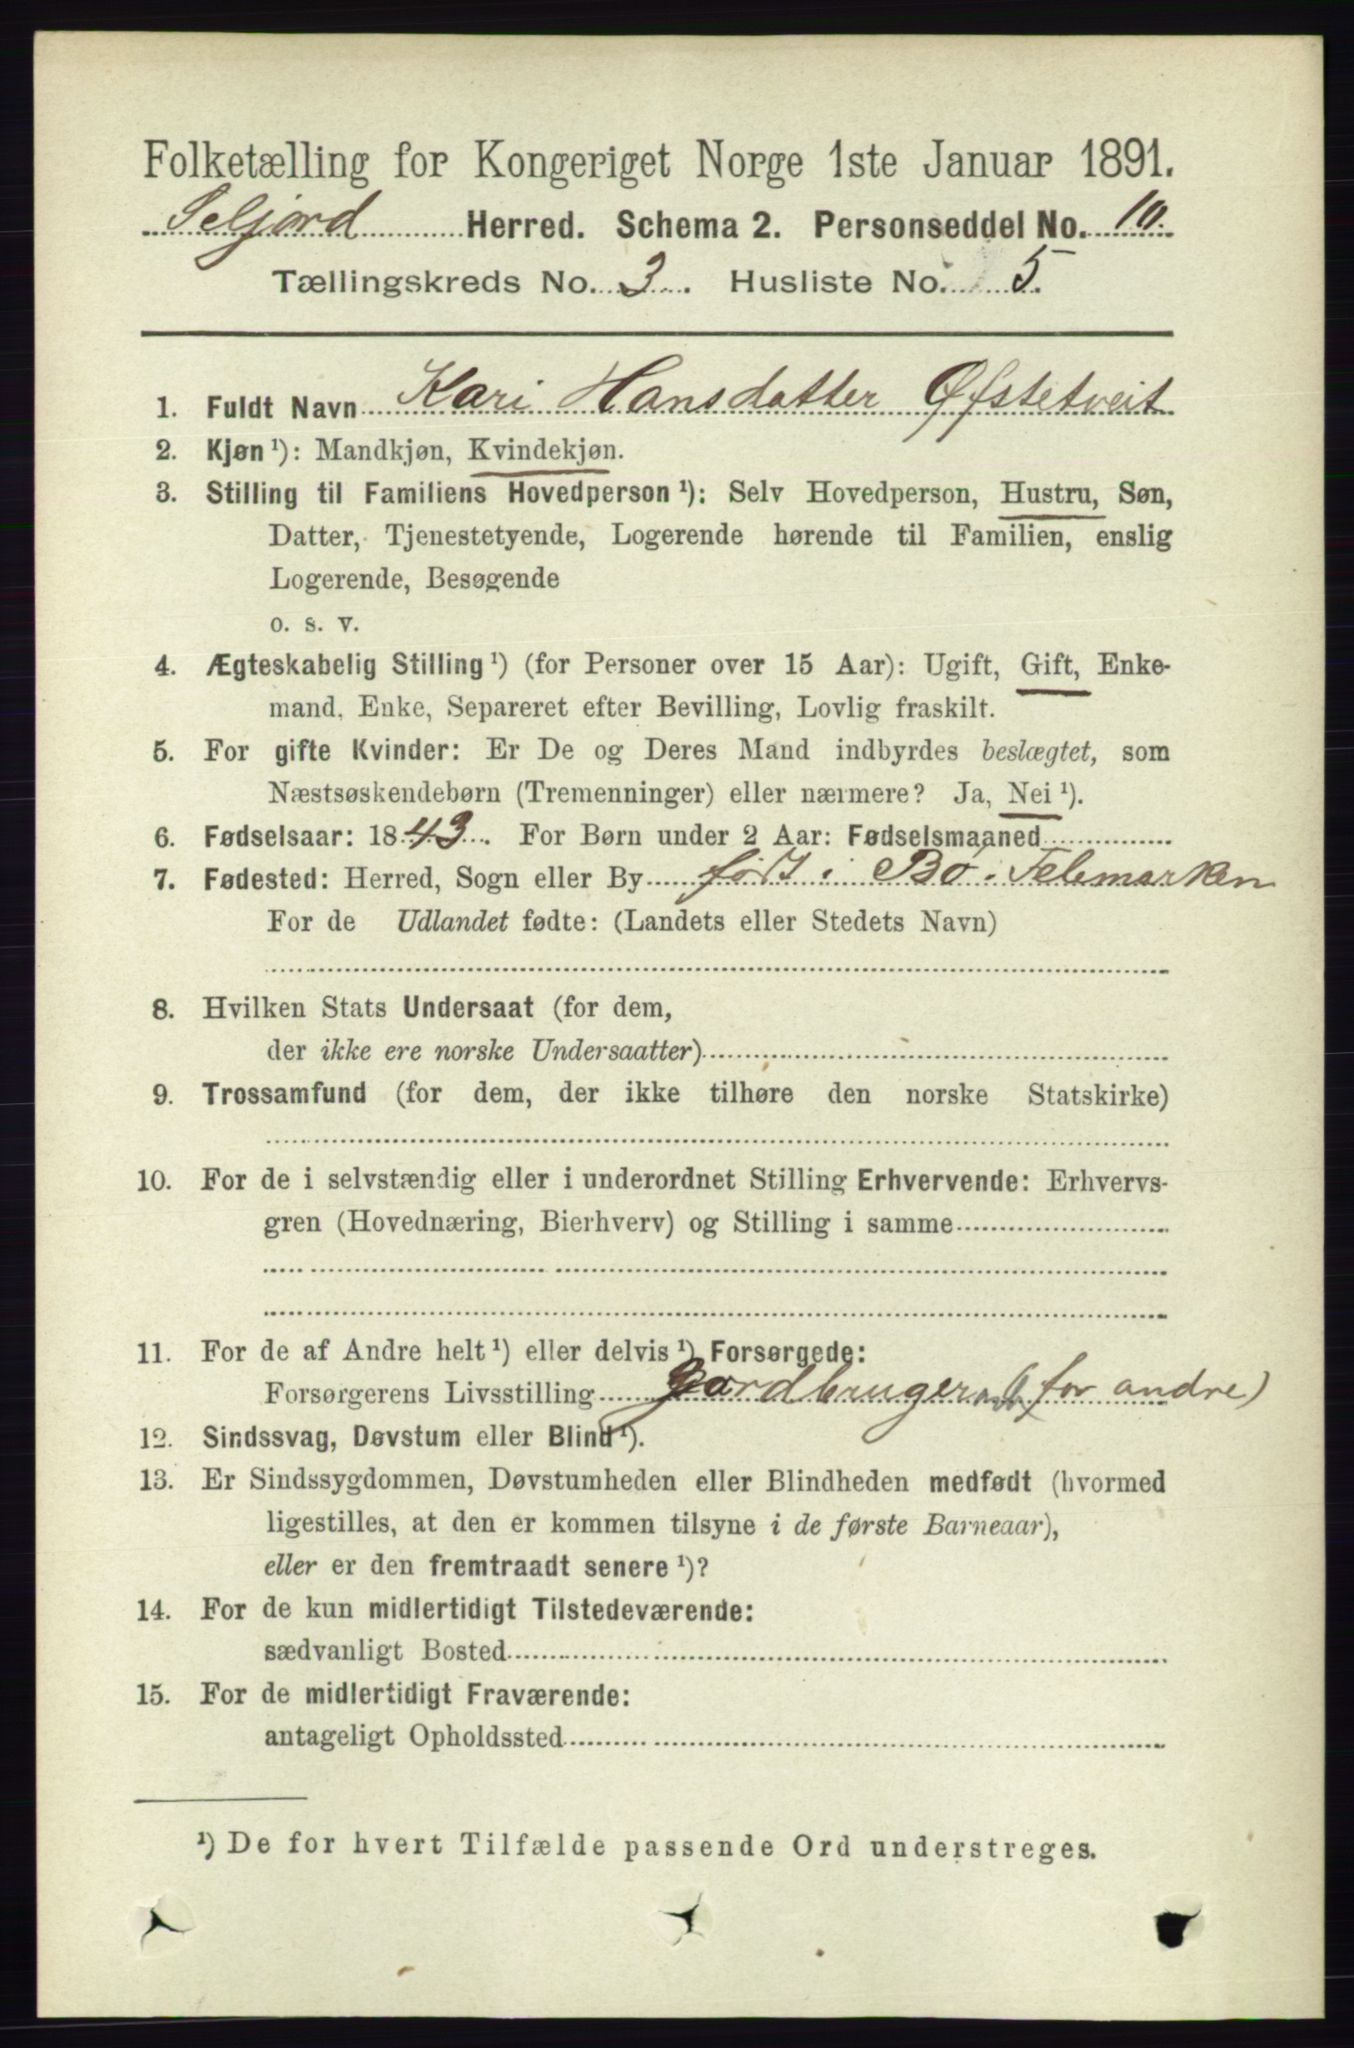 Folketælling for Kongeriget Norge 1ste Januar 1891.
Seljord Herred. Schema 2. Personseddel No. 10.
Tællingskreds No. 3. Husliste No. 5.
1. Fuldt Navn Kari Hansdatter Øfstetveit
2. Kjøn ¹): Mandkjøn, Kvindekjøn.
3. Stilling til Familiens Hovedperson ¹): Selv Hovedperson, Hustru, Søn,
Datter, Tjenestetyende, Logerende hørende til Familien, enslig
Logerende, Besøgende
o. s. v.
4. Ægteskabelig Stilling ¹) (for Personer over 15 Aar): Ugift, Gift, Enke-
mand, Enke, Separeret efter Bevilling, Lovlig fraskilt.
5. For gifte Kvinder: Er De og Deres Mand indbyrdes beslægtet, som
Næstsøskendebørn (Tremenninger) eller nærmere? Ja, Nei ¹).
6. Fødselsaar: 1843. For Børn under 2 Aar: Fødselsmaaned
7. Fødested: Herred, Sogn eller By født i Bø i Telemarken
For de Udlandet fødte: (Landets eller Stedets Navn)
8. Hvilken Stats Undersaat (for dem,
der ikke ere norske Undersaatter)
9. Trossamfund (for dem, der ikke tilhøre den norske Statskirke)
10. For de i selvstændig eller i underordnet Stilling Erhvervende: Erhvervs-
gren (Hovednæring, Bierhverv) og Stilling i samme
11. For de af Andre helt ¹) eller delvis ¹) Forsørgede:
Forsørgerens Livsstilling Gardbruger (for andre)
12. Sindssvag, Døvstum eller Blind ¹).
13. Er Sindssygdommen, Døvstumheden eller Blindheden medfødt (hvormed
ligestilles, at den er kommen tilsyne i de første Barneaar),
eller er den fremtraadt senere ¹)?
14. For de kun midlertidigt Tilstedeværende:
sædvanligt Bosted
15. For de midlertidigt Fraværende:
antageligt Opholdssted
¹) De for hvert Tilfælde passende Ord understreges.